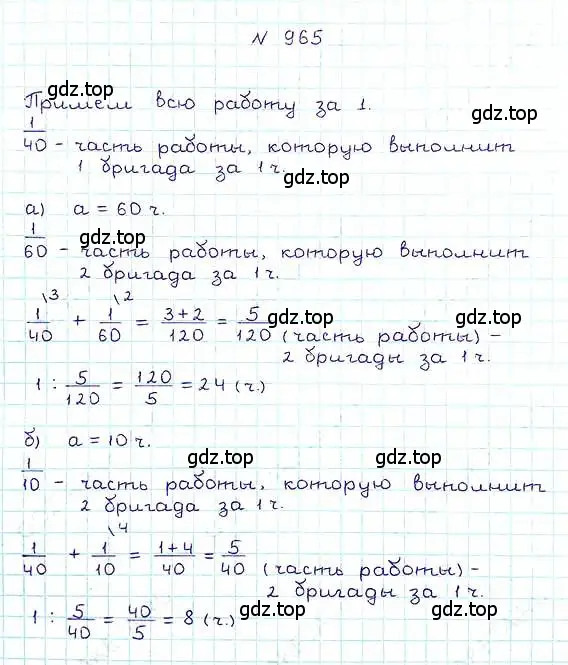 N 965
gdz.top
Примем всю работу за 1. gdz.top
1/40 - часть работы, которую выполнит
1 бригада за 1 ч. gdz.top
а) a = 60 ч.
gdz.top
1/60 - часть работы, которую выполнит
2 бригада за 1 ч.
1/40 \3 + 1/60 \2 = (3+2)/120 = 5/120 (часть работы) -
gdz.top gdz.top
2 бригады за 1 ч.
1 : 5/120 = 120/5 = 24 (ч.)
б) a = 10 ч.
gdz.top gdz.top
1/10 - часть работы, которую выполнит
2 бригада за 1 ч.
1/40 + 1/10 \4 = (1+4)/40 = 5/40 (часть работы) -
gdz.top gdz.top
2 бригады за 1 ч.
1 : 5/40 = 40/5 = 8 (ч.)
gdz.top